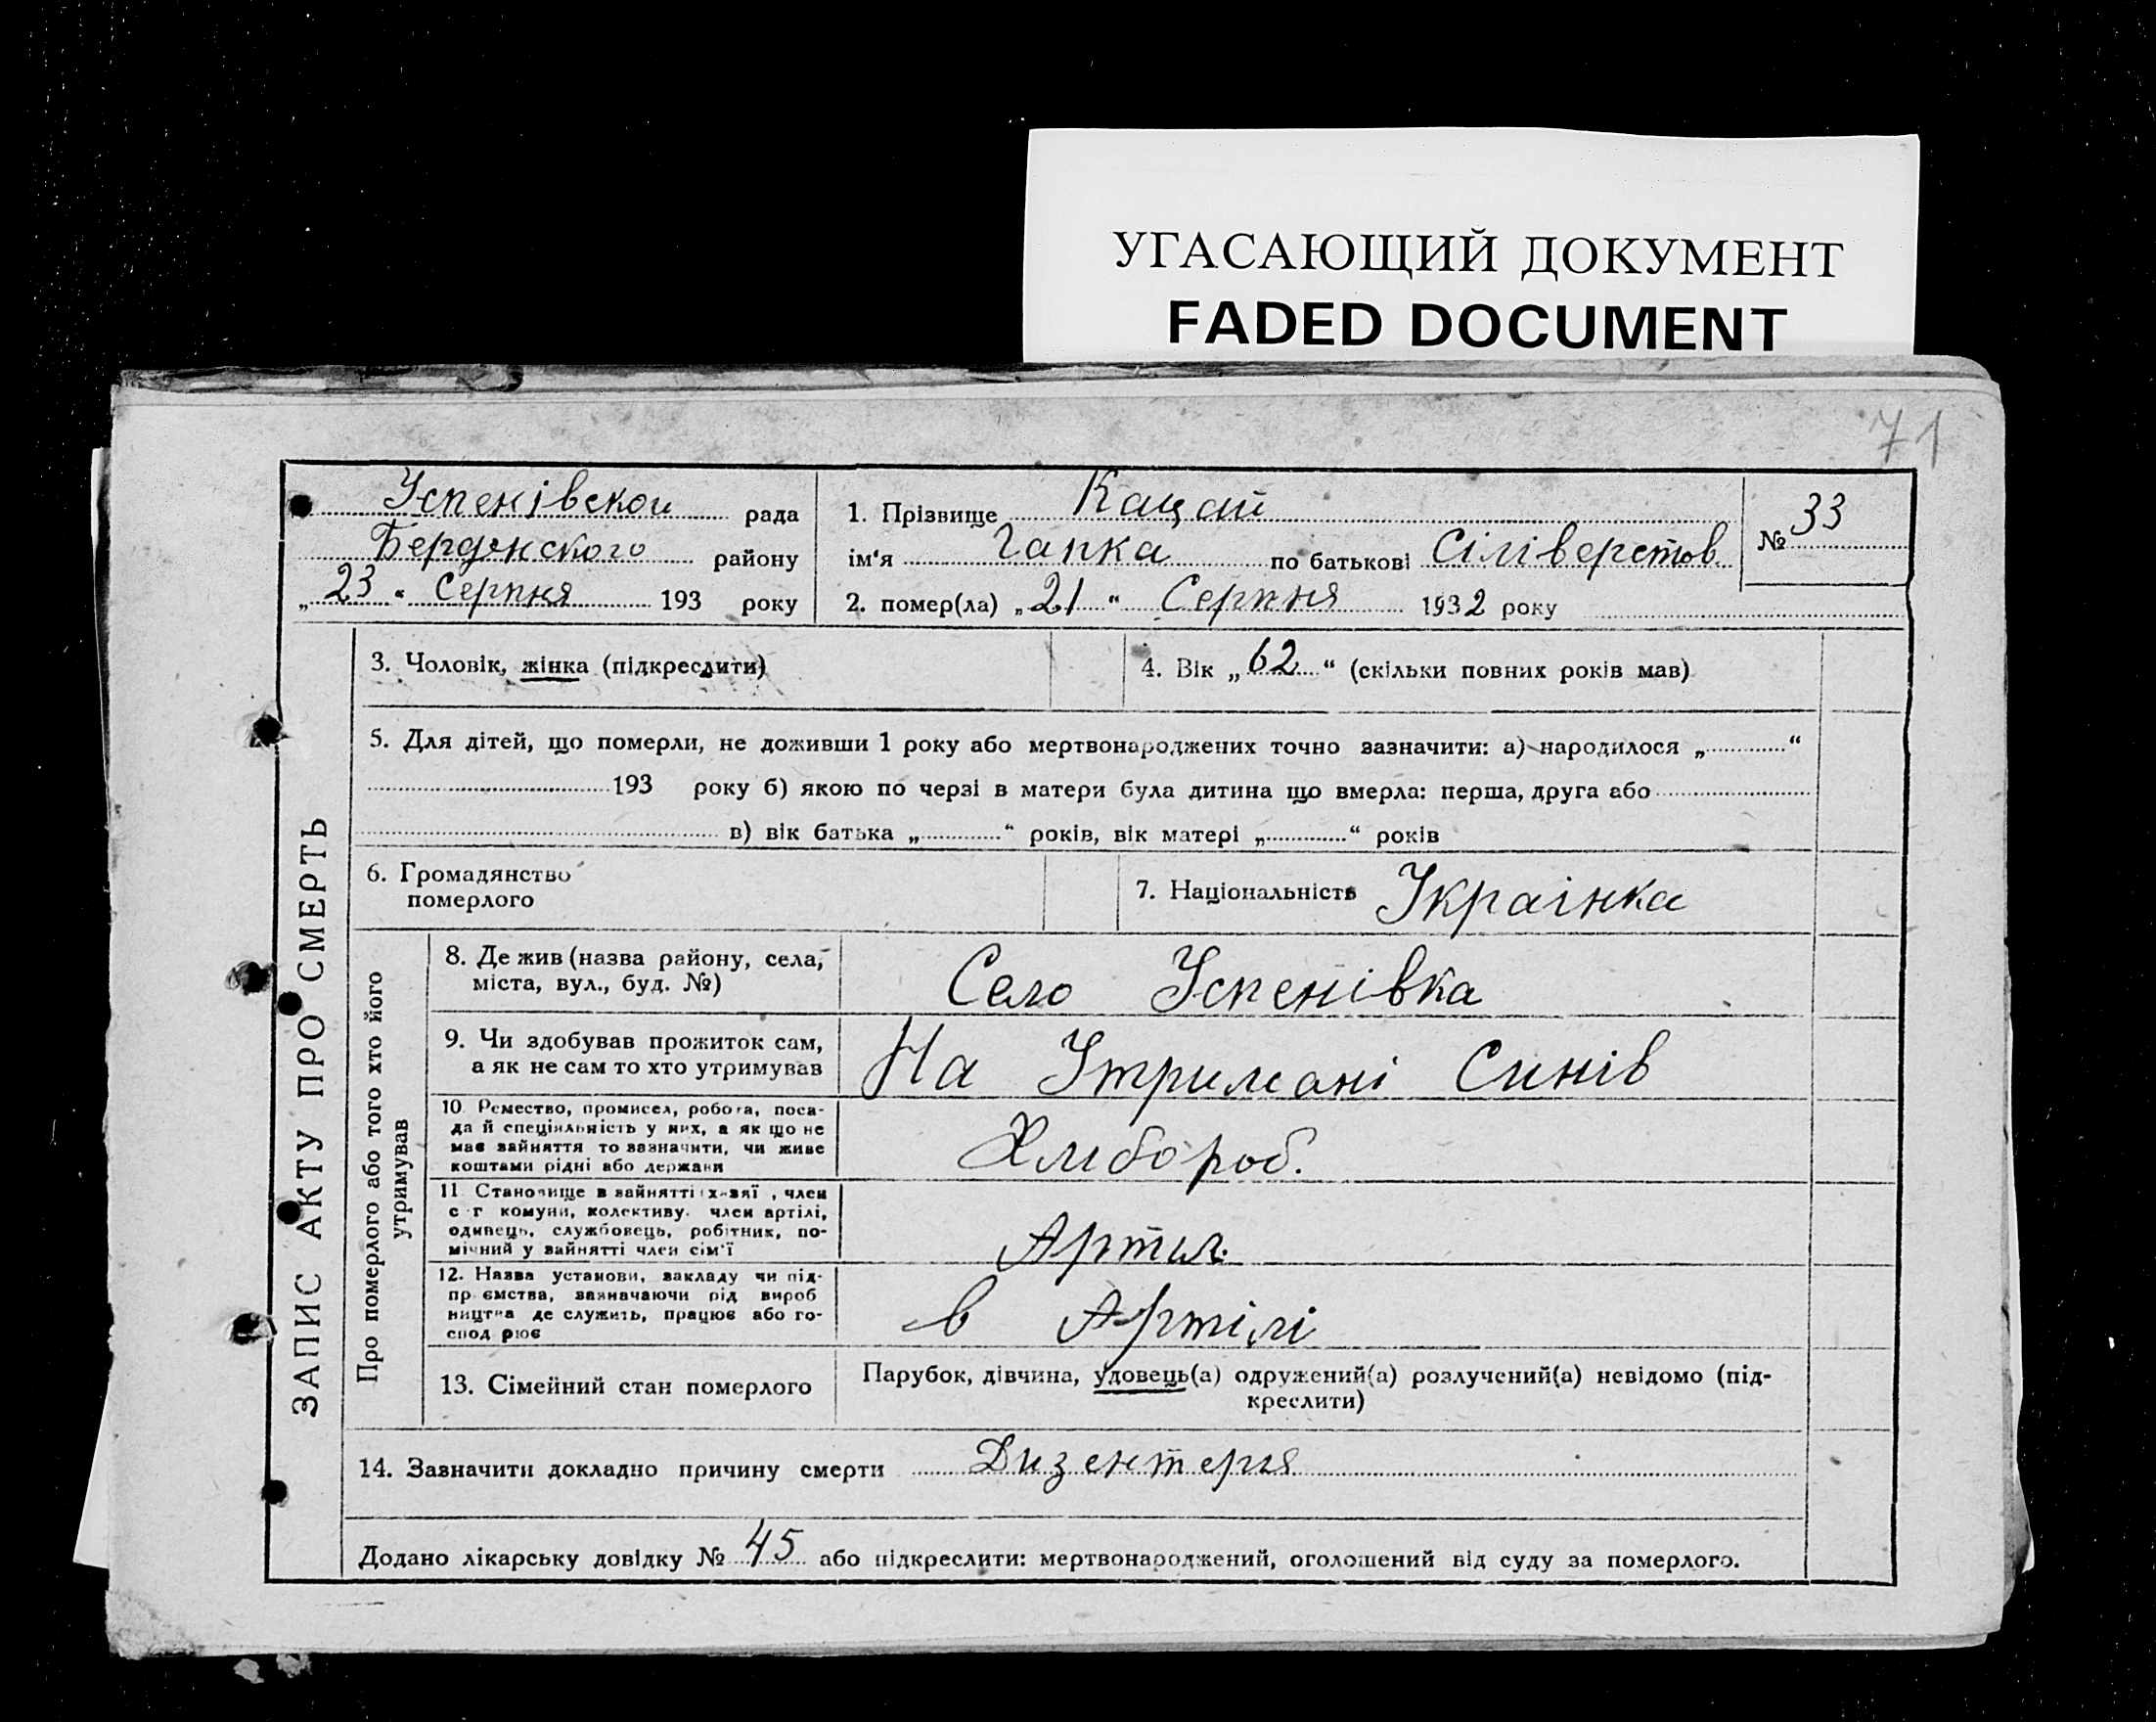 УГАСАЮЩИЙ ДОКУМЕНТ
FADED DOCUMENT
71
Успенівскои рада
Бердянского району
„23“ Серпня 193 року
1. Прізвище Кацай
ім'я Гапка по батькові Сіліверстов.
2. помер(ла) „21“ Серпня 1932 року
№ 33
ЗАПИС АКТУ ПРО СМЕРТЬ
3. Чоловік, жінка (підкреслити)
4. Вік „62“ (скільки повних років мав)
5. Для дітей, що померли, не доживши 1 року або мертвонароджених точно зазначити: а) народилося „ “
193 року б) якою по черзі в матери була дитина що вмерла: перша, друга або
в) вік батька „ “ років, вік матері „ “ років
6. Громадянство
померлого
7. Національність Украінка
Про померлого або того хто його
утримував
8. Де жив (назва району, села,
міста, вул., буд. №)
Село Успенівка
9. Чи здобував прожиток сам,
а як не сам то хто утримував
На Утримані Синів
10. Ремество, промисел, робота, поса-
да й спеціяльність у них, а як що не
має зайняття то зазначити, чи живе
коштами рідні або держави
Хлибороб.
11. Становище в зайнятті х-зяї, член
с г комуни, колективу. член артілі,
одинець, службовець, робітник, по-
мічний у зайнятті член сім'ї
Артил.
12. Назва установи, закладу чи під-
пр ємства, зазначаючи рід вироб
ництва де служить, працює або го-
спод рює
в Артілі
13. Сімейний стан померлого
Парубок, дівчина, удовець(а) одружений(а) розлучений(а) невідомо (під-
креслити)
14. Зазначити докладно причину смерти Дизентерия
Додано лікарську довідку № 45 або підкреслити: мертвонароджений, оголошений від суду за померлого.